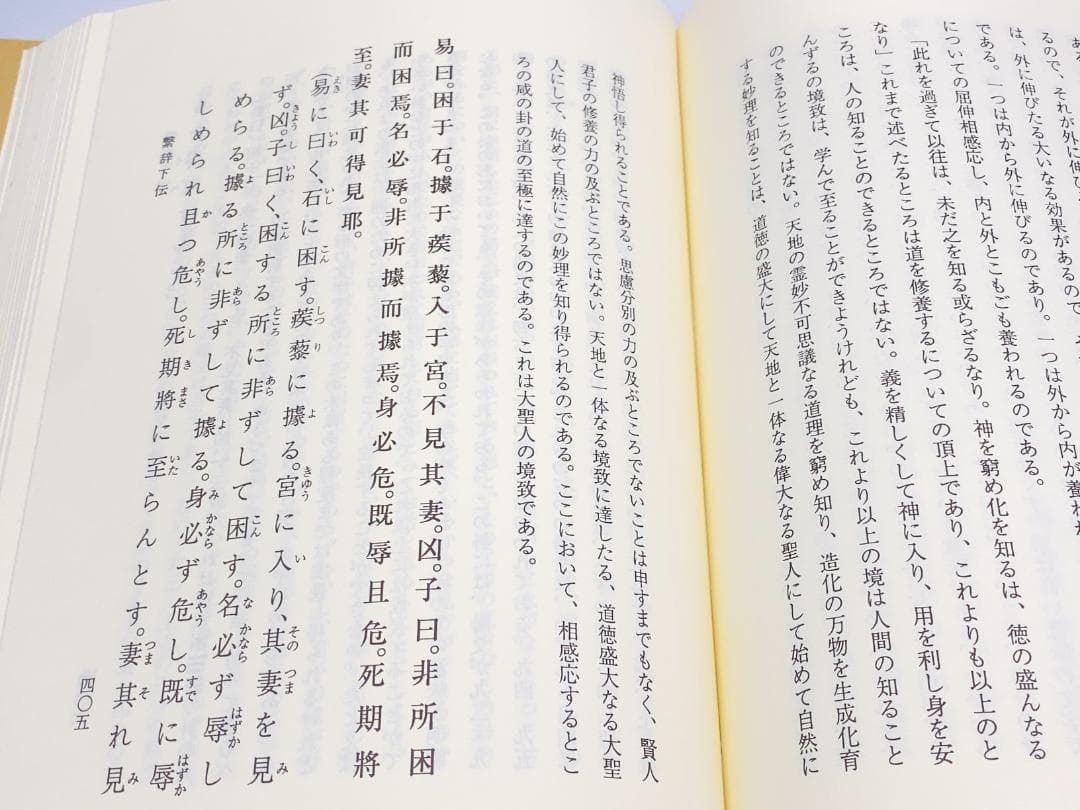 ある
るので、それが外に伸び
は、外に伸びたる大いなる効果があるので
である。一つは内から外に伸びるのであり。一つは外から内が養われ
についての屈伸相感応し、内と外とこもごも養われるのである。
「此れを過ぎて以往は、未だ之を知る或らざるなり。神を窮め化を知るは、徳の盛んなる
なり」これまで述べたるところは道を修養するについての頂上であり、これよりも以上のと
ころは、人の知ることのできるところではない。義を精しくして神に入り、用を利し身を安
んずるの境致は、学んで至ることができようけれども、これより以上の境は人間の知ること
のできるところではない。天地の霊妙不可思議なる道理を窮め知り、造化の万物を生成化育
する妙理を知ることは、道徳の盛大にして天地と一体なる偉大なる聖人にして始めて自然に
神悟し得られることである。思慮分別の力の及ぶところでないことは申すまでもなく、賢人
君子の修養の力の及ぶところではない。天地と一体なる境致に達したる、道徳盛大なる大聖
人にして、始めて自然にこの妙理を知り得られるのである。ここにおいて、相感応するとこ
ろの咸の卦の道の至極に達するのである。これは大聖人の境致である。
易曰。困于石。據于蒺藜。入于宮。不見其妻。凶。子曰。非所困
而困焉。名必辱。非所據而據焉。身必危。既辱且危。死期將
至。妻其可得見耶。
(易に曰く、石に困す。蒺藜に據る。宮に入り、其妻を見
ず。凶。子曰く、困する所に非ずして困す。名必ず辱し
められる。據る所に非ずして據る。身必ず危し。既に辱
しめられ且つ危し。死期將に至らんとす。妻其れ見
繋辞下伝
四〇五